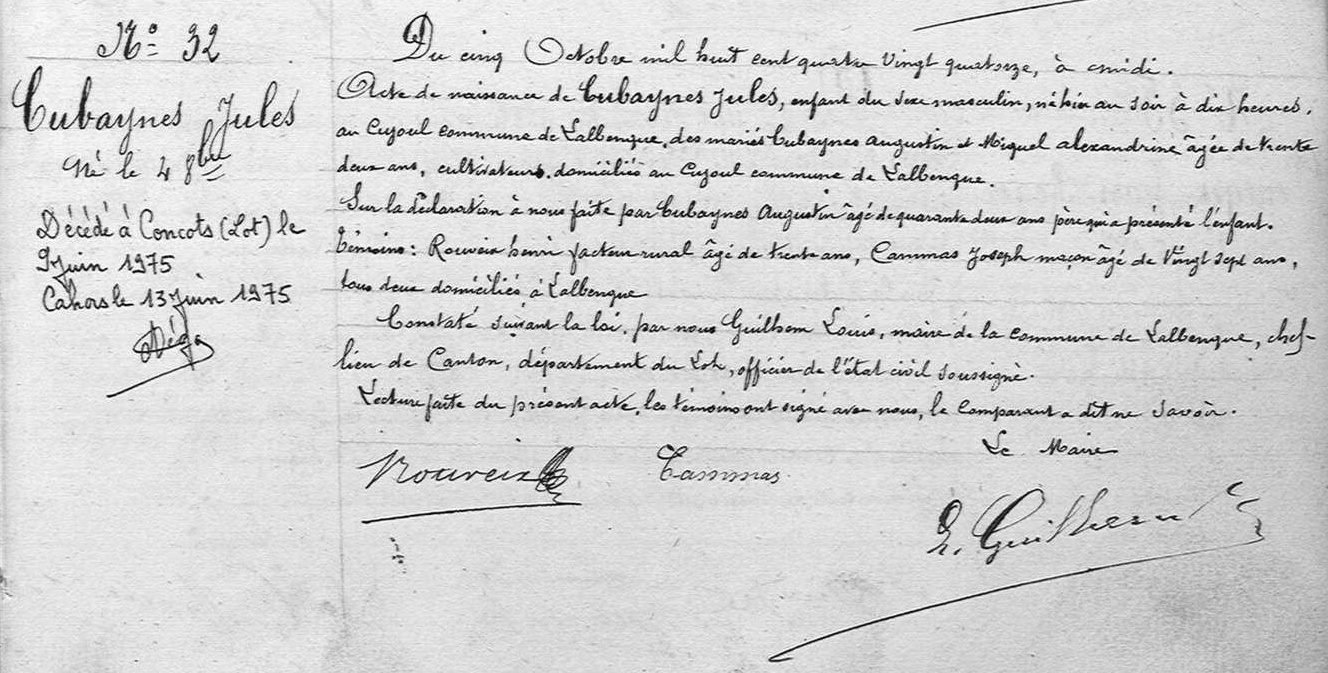 N° 32
Cubaynes Jules
Né le 4 8bre
Décédé à Concots (Lot) le
9 juin 1975
Cahors le 13 juin 1975
Du cinq Octobre mil huit cent quatre vingt quatorze, à midi.
Acte de naissance de Cubaynes Jules, enfant du sexe masculin, né hier au soir à dix heures,
au Cuyoul commune de Lalbenque, des mariés Cubaynes Augustin et Miquel alexandrine âgée de trente
deux ans, cultivateurs, domiciliés au Cuyoul commune de Lalbenque.
Sur la déclaration à nous faite par Cubaynes Augustin âgé de quarante deux ans père qui a présenté l'enfant.
Témoins : Rouveix henri facteur rural âgé de trente ans, Cammas Joseph maçon âgé de Vingt sept ans,
tous deux domiciliés à Lalbenque
Constaté suivant la loi, par nous Guilhem Louis, maire de la commune de Lalbenque, chef-
lieu de Canton, département du Lot, officier de l'état civil soussigné.
Lecture faite du présent acte, les témoins ont signé avec nous, le comparant a dit ne savoir.
Le Maire
Rouveix
Cammas
L. Guilhem